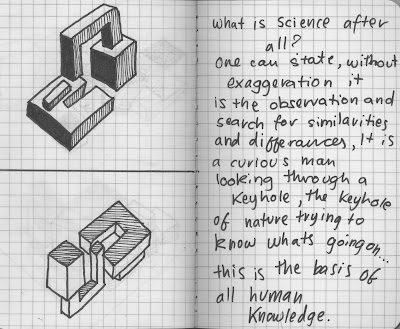 what is science after
all?
one can state, without
exaggeration it
is the observation and
search for similarities
and differances, It is
a curious man
looking through a
keyhole, the keyhole
of nature trying to
know whats going on...
this is the basis of
all human
knowledge.